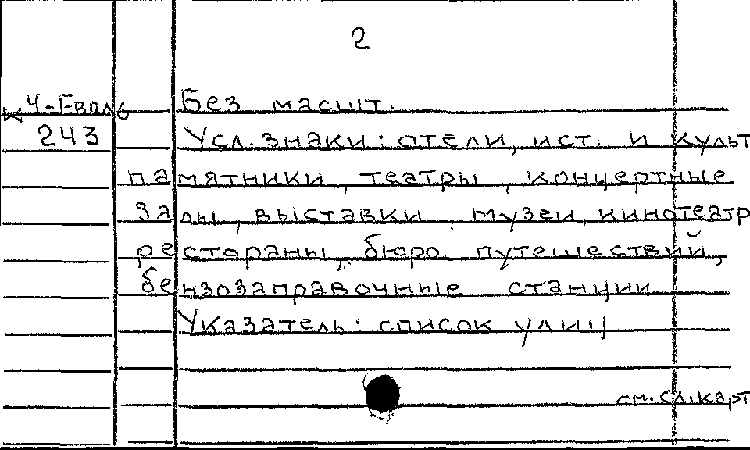 2
Без масшт.
243 Усл. знаки: отели, ист. и культ
памятники, театры, концертные
залы, выставки, музеи, кинотеатр
рестораны, бюро путешествий,
бензозаправочные станции
Указатель: список улиц
см. сл. карт